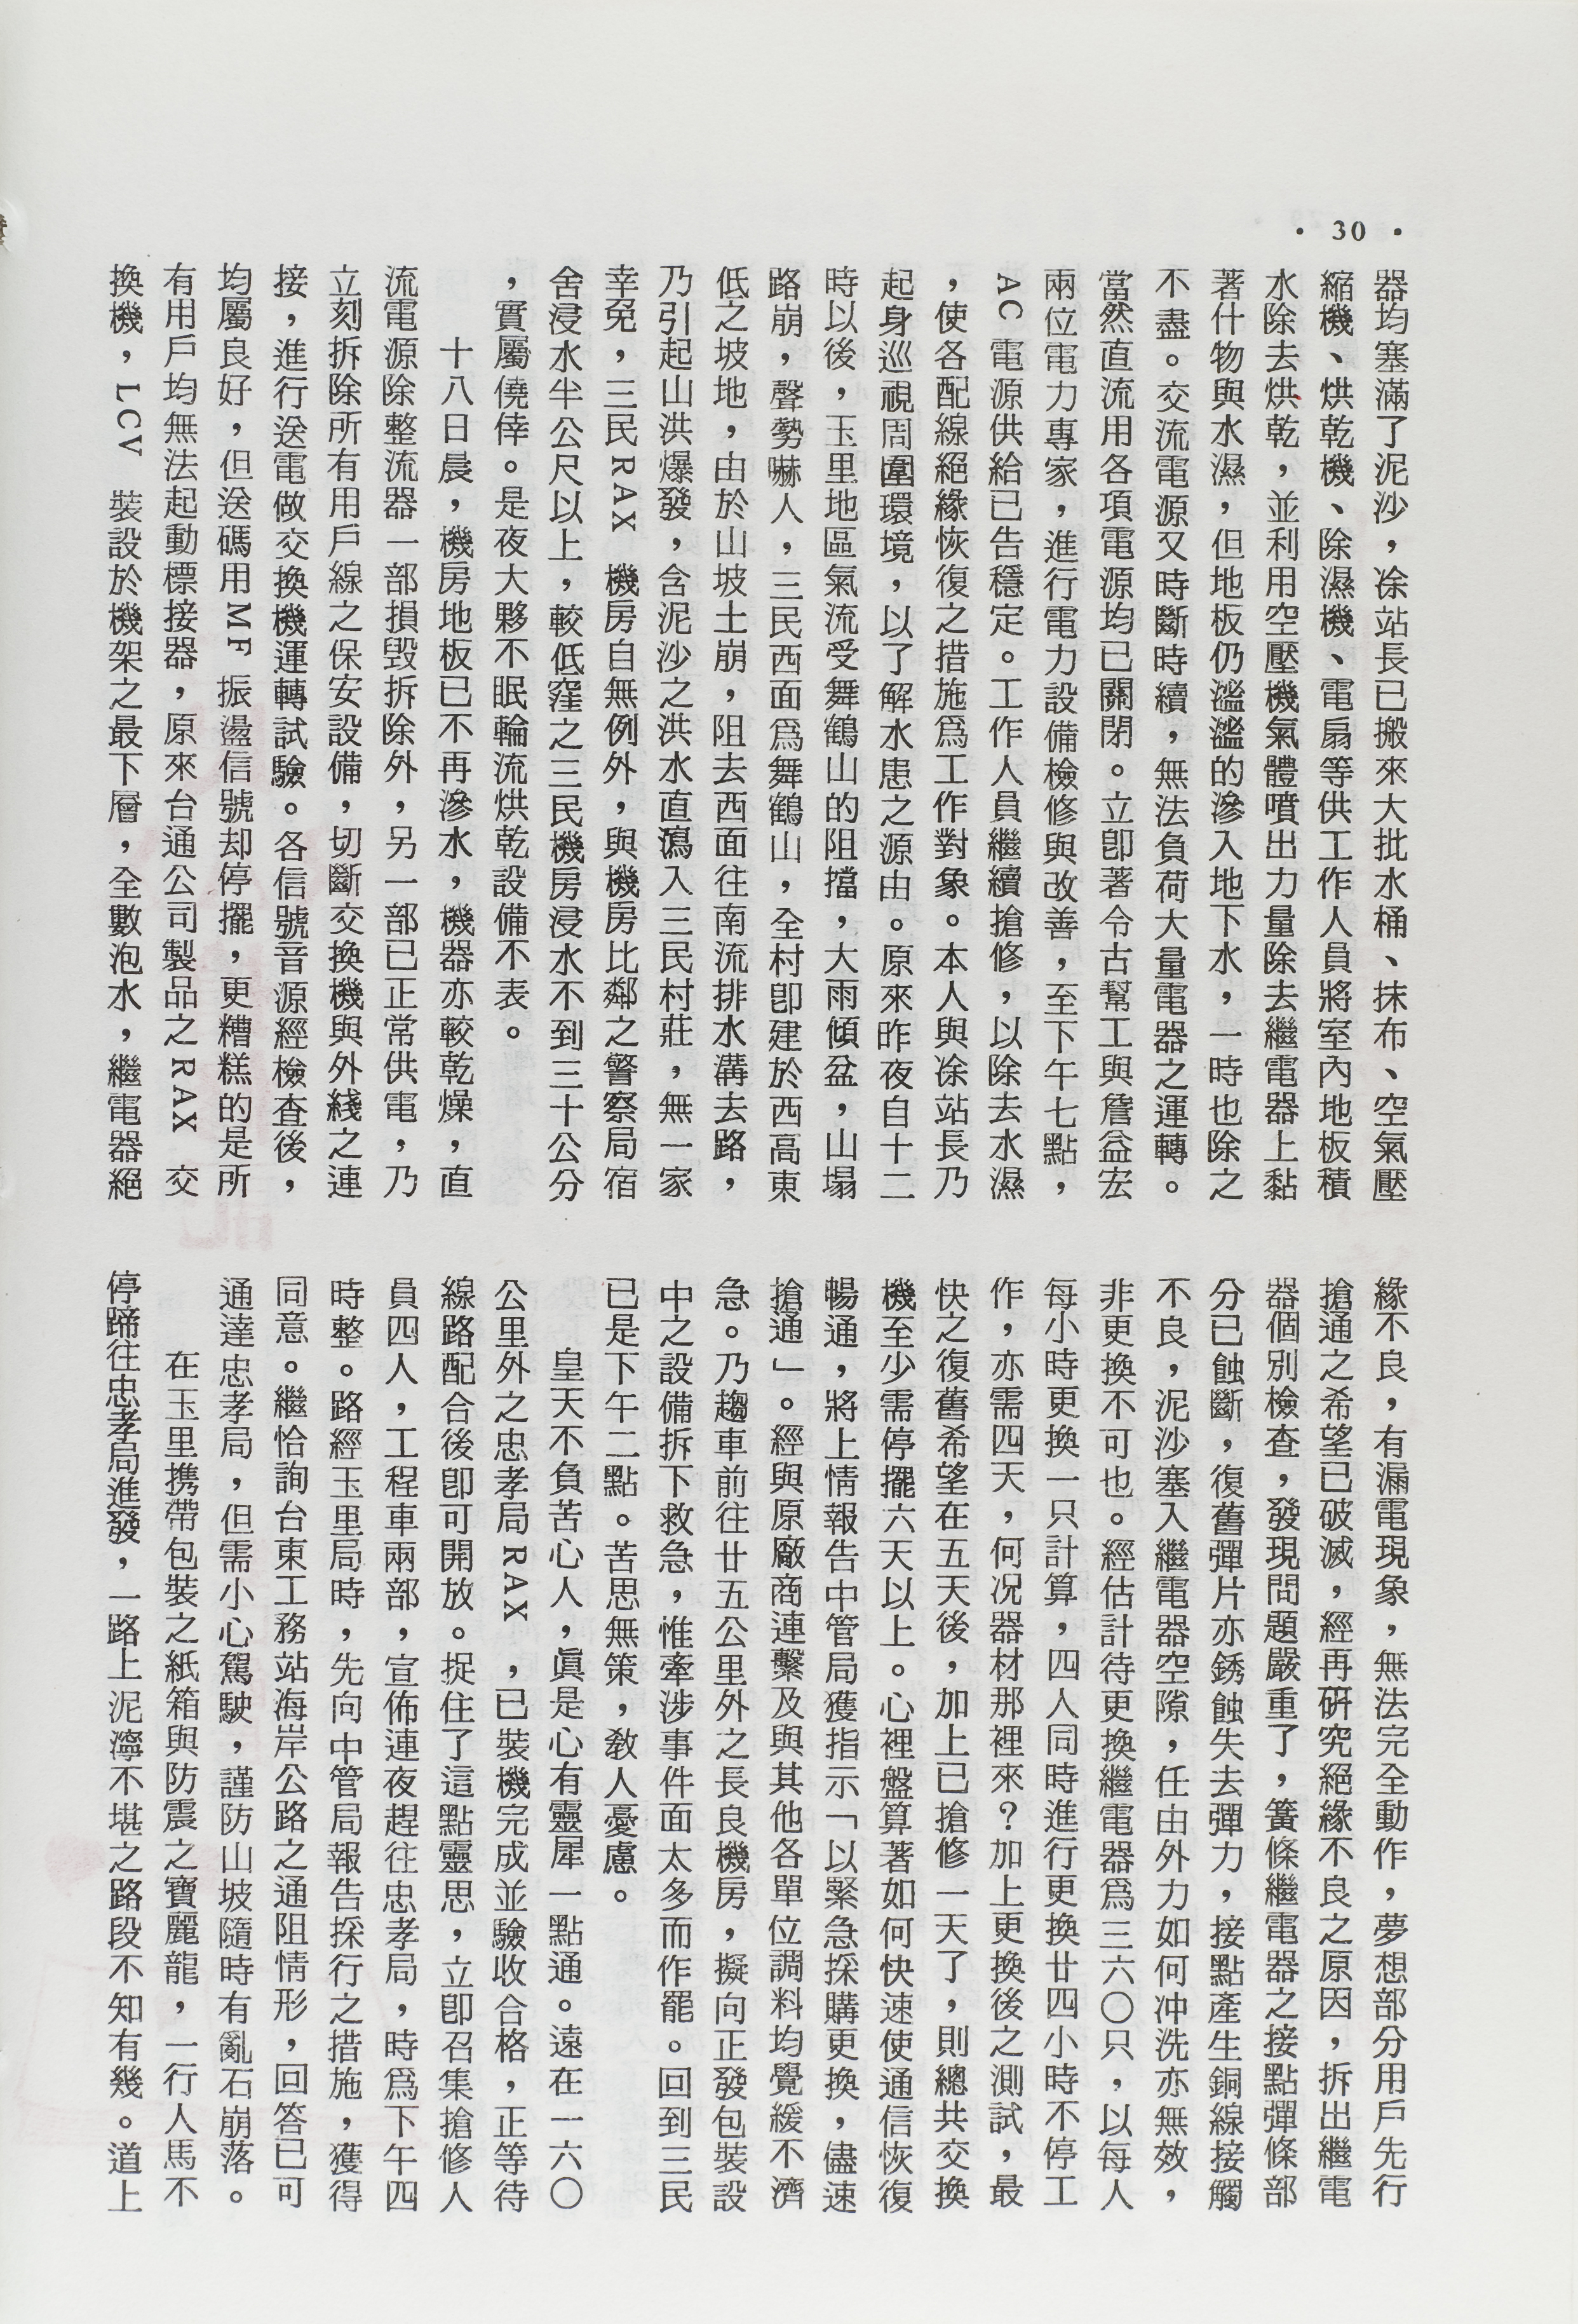 • 30 •
器均塞滿了泥沙，凃站長已搬來大批水桶、抹布、空氣壓
縮機、烘乾機、除濕機、電扇等供工作人員將室內地板積
水除去烘乾，並利用空壓機氣體噴出力量除去繼電器上黏
著什物與水濕，但地板仍滥滥的滲入地下水，一時也除之
不盡。交流電源又時斷時續，無法負荷大量電器之運轉。
當然直流用各項電源均已關閉。立卽著令古幫工與詹益宏
兩位電力專家，進行電力設備檢修與改善，至下午七點，
AC電源供給已告穩定。工作人員繼續搶修，以除去水濕
，使各配線絕緣恢復之措施爲工作對象。本人與凃站長乃
起身巡視周圍環境，以了解水患之源由。原來昨夜自十二
時以後，玉里地區氣流受舞鶴山的阻擋，大雨傾盆，山塌
路崩，聲勢嚇人，三民西面爲舞鶴山，全村卽建於西高東
低之坡地，由於山坡土崩，阻去西面往南流排水溝去路，
乃引起山洪爆發，含泥沙之洪水直瀉入三民村莊，無一家
幸免，三民RAX 機房自無例外，與機房比鄰之警察局宿
舍浸水半公尺以上，較低窪之三民機房浸水不到三十公分
，實屬僥倖。是夜大夥不眠輪流烘乾設備不表。
十八日晨，機房地板已不再滲水，機器亦較乾燥，直
流電源除整流器一部損毀拆除外，另一部已正常供電，乃
立刻拆除所有用戶線之保安設備，切斷交換機與外綫之連
接，進行送電做交換機運轉試驗。各信號音源經檢查後，
均屬良好，但送碼用MF 振盪信號却停擺，更糟糕的是所
有用戶均無法起動標接器，原來台通公司製品之RAX 交
換機，LCV 裝設於機架之最下層，全數泡水，繼電器絕
緣不良，有漏電現象，無法完全動作，夢想部分用戶先行
搶通之希望已破滅，經再硏究絕緣不良之原因，拆出繼電
器個別檢查，發現問題嚴重了，簧條繼電器之接點彈條部
分已蝕斷，復舊彈片亦銹蝕失去彈力，接點產生銅線接觸
不良，泥沙塞入繼電器空隙，任由外力如何冲洗亦無效，
非更換不可也。經估計待更換繼電器爲三六〇只，以每人
每小時更換一只計算，四人同時進行更換廿四小時不停工
作，亦需四天，何况器材那裡來？加上更換後之測試，最
快之復舊希望在五天後，加上已搶修一天了，則總共交換
機至少需停擺六天以上。心裡盤算著如何快速使通信恢復
暢通，將上情報告中管局獲指示「以緊急採購更換，儘速
搶通」。經與原廠商連繫及與其他各單位調料均覺緩不濟
急。乃趨車前往廿五公里外之長良機房，擬向正發包裝設
中之設備拆下救急，惟牽涉事件面太多而作罷。回到三民
已是下午二點。苦思無策，敎人憂慮。
皇天不負苦心人，眞是心有靈犀一點通。遠在一六〇
公里外之忠孝局RAX ，已裝機完成並驗收合格，正等待
線路配合後卽可開放。捉住了這點靈思，立卽召集搶修人
員四人，工程車兩部，宣佈連夜趕往忠孝局，時爲下午四
時整。路經玉里局時，先向中管局報告採行之措施，獲得
同意。繼恰詢台東工務站海岸公路之通阻情形，回答已可
通達忠孝局，但需小心駕駛，謹防山坡隨時有亂石崩落。
在玉里携帶包裝之紙箱與防震之寶麗龍，一行人馬不
停蹄往忠孝局進發，一路上泥濘不堪之路段不知有幾。道上